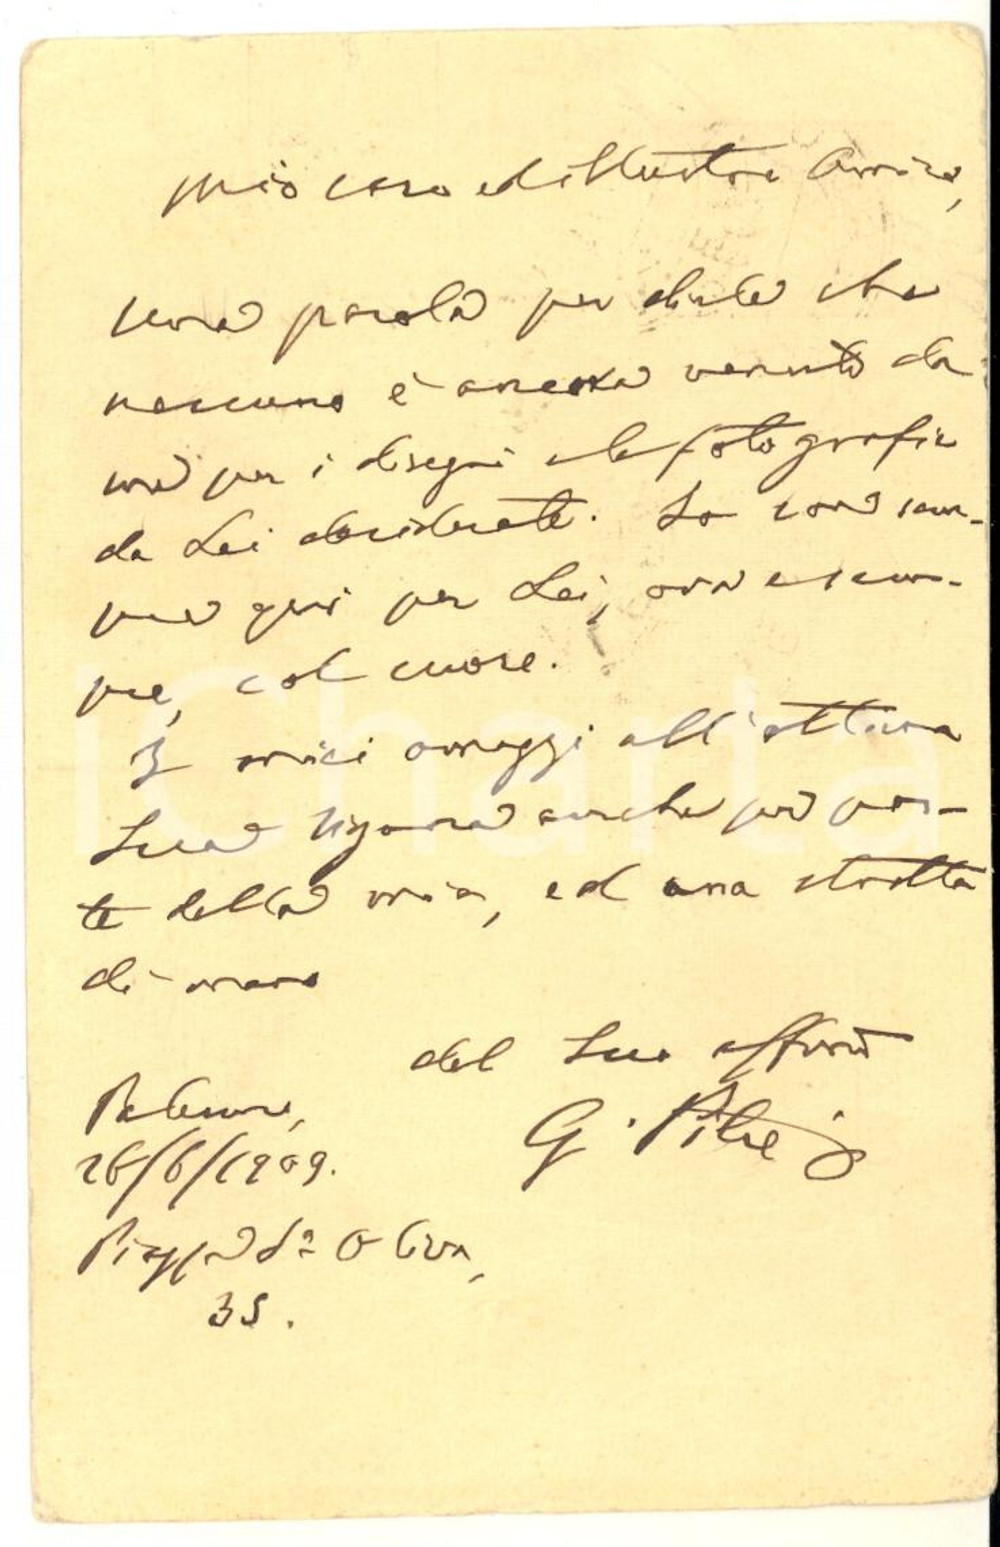 Mio caro ed illustre Amico,
una parola per dirle che
nessuno è ancora venuto da
me per i disegni e le fotografie
da Lei desiderate. Io sono sem-
pre qui per Lei, ora e sem-
pre, col cuore.
I miei omaggi all'ottima
Sua Signora anche per par-
te della mia, ed una stretta
di mano
del Suo affmo
G. Pitrè
Palermo,
26/6/1909.
Piazza Sa Oliva,
35.